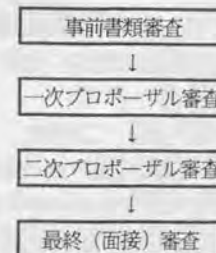 事前書類審査
↓
一次プロポーザル審査
↓
二次プロポーザル審査
↓
最終（面接）審査